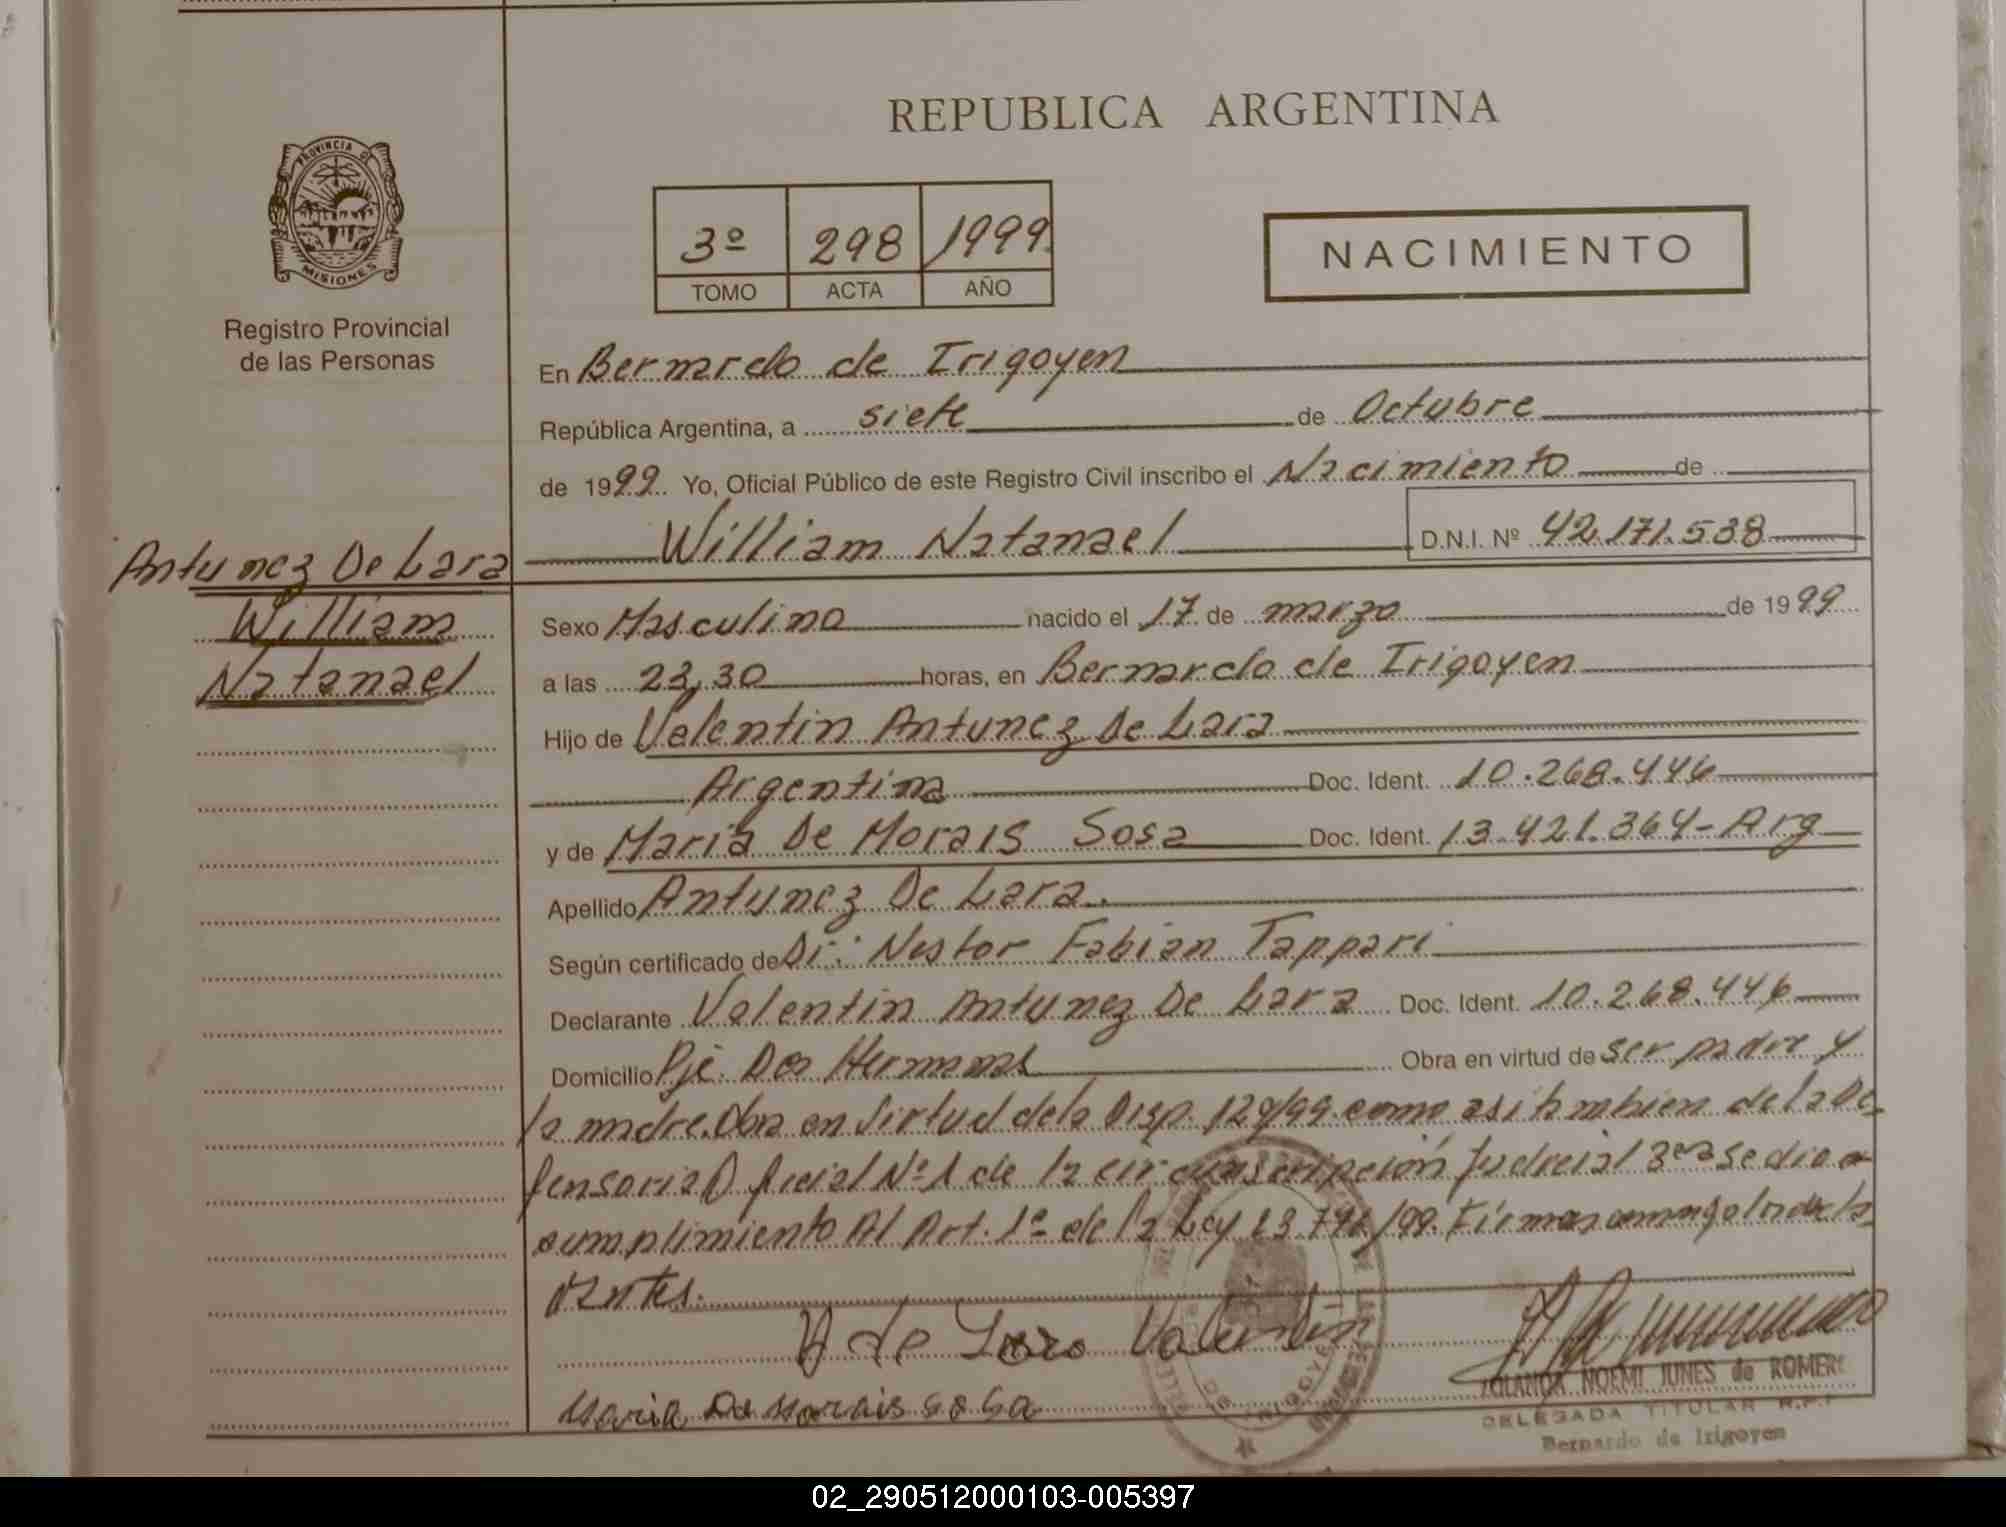 REPUBLICA ARGENTINA
PROVINCIA DE
MISIONES
Registro Provincial
de las Personas
3º 298 1999
TOMO ACTA AÑO
NACIMIENTO
En Bernardo de Irigoyen
República Argentina, a siete de Octubre
de 1999. Yo, Oficial Público de este Registro Civil inscribo el Nacimiento de
William Natanael D.N.I. Nº 42.171.538
Antunez De Lara
William
Natanael
Sexo Masculino nacido el 17 de marzo de 1999
a las 23,30 horas, en Bernardo de Irigoyen
Hijo de Valentin Antunez De Lara
Argentina Doc. Ident. 10.268.446
y de Maria De Morais Sosa Doc. Ident. 13.421.364-Arg
Apellido Antunez De Lara.
Según certificado de Dr: Nestor Fabian Tappari
Declarante Valentin Antunez De Lara Doc. Ident. 10.268.446
Domicilio Pje. Dos Hermanas Obra en virtud de ser padre y
la madre. Obra en Virtud de la Disp. 129/99. como asi tambien de la De
fensoria Oficial Nº 1 de la circunscripción Judicial 3era se dio a
cumplimiento Al Art. 1º de la Ley 23.796/99. Firman conmigo los decla
rantes.
A de Lara Valentin
Maria De Morais Sosa
YOLANDA NOEMI JUNES de ROMERO
DELEGADA TITULAR R.P.P
Bernardo de Irigoyen
02_290512000103-005397